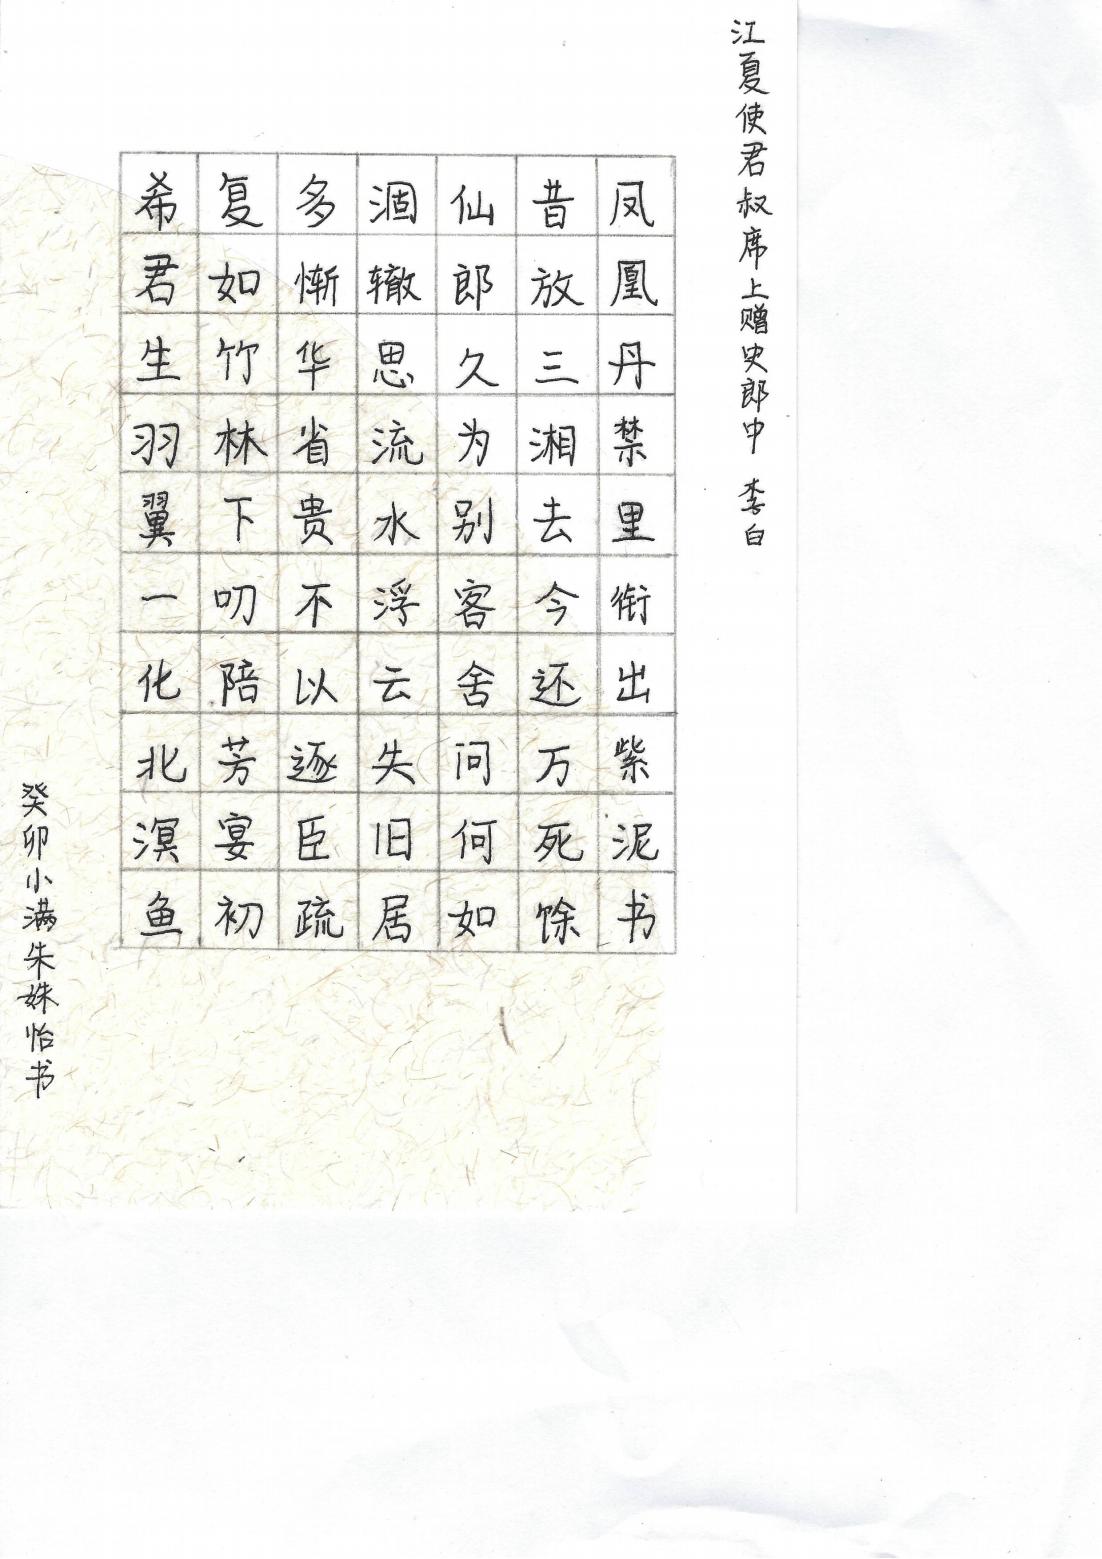 江夏使君叔席上赠史郎中 李白
凤凰丹禁里衔出紫泥书
昔放三湘去今还万死馀
仙郎久为别客舍问何如
涸辙思流水浮云失旧居
多惭华省贵不以逐臣疏
复如竹林下叨陪芳宴初
希君生羽翼一化北溟鱼
癸卯小满朱姝怡书